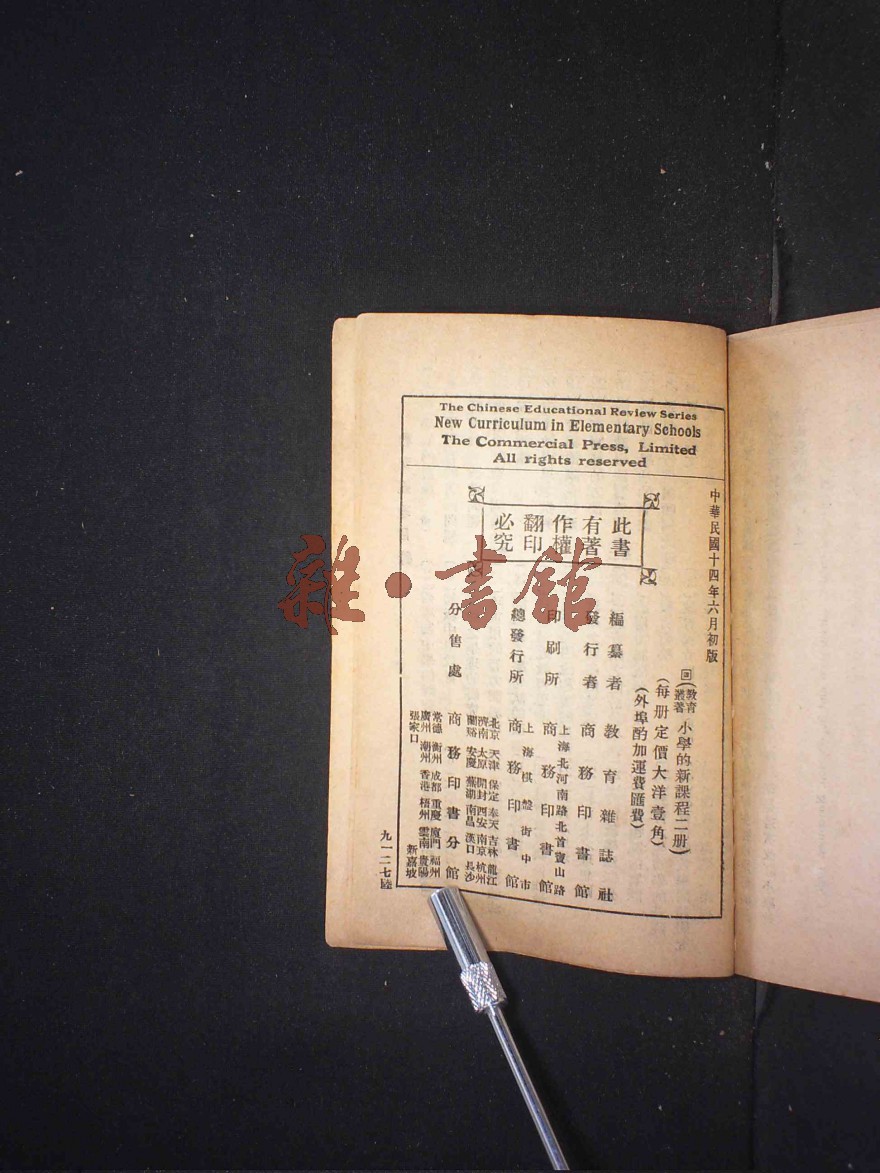 The Chinese Educational Review Series
New Curriculum in Elementary Schools
The Commercial Press, Limited
All rights reserved
中華民國十四年六月初版
此書
有著
作權
翻印
必究
(教育叢著)小學的新課程二册)
(每册定價大洋壹角)
(外埠酌加運費匯費)
編纂者 教育雜誌社
發行者 商務印書館
印刷所 上海北河南路北首寶山路 商務印書館
總發行所 上海棋盤街中市 商務印書館
分售處 商務印書分館
北京 天津 保定 奉天 吉林 龍江
濟南 太原 開封 西安 南京 杭州
蘭谿 安慶 蕪湖 南昌 漢口 長沙
常德 衡州 成都 重慶 廈門 福州
廣州 潮州 香港 梧州 雲南 貴陽
張家口 新嘉坡
九一二七陸
雜·書館